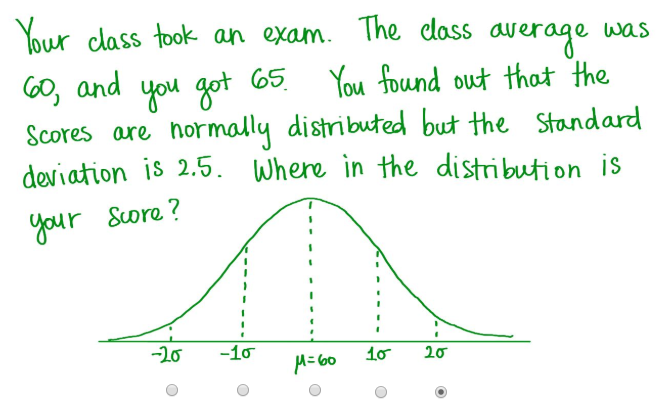 Your class took an exam. The class average was
60, and you got 65. You found out that the
scores are normally distributed but the standard
deviation is 2.5. Where in the distribution is
your score?
-2σ -1σ μ=60 1σ 2σ